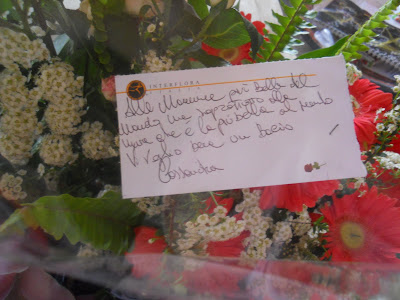 INTERFLORA
Alla Mamma più bella del
Mondo ma soprattutto alla
che è la più bella al mondo
Vi voglio bene un bacio
Cassandra